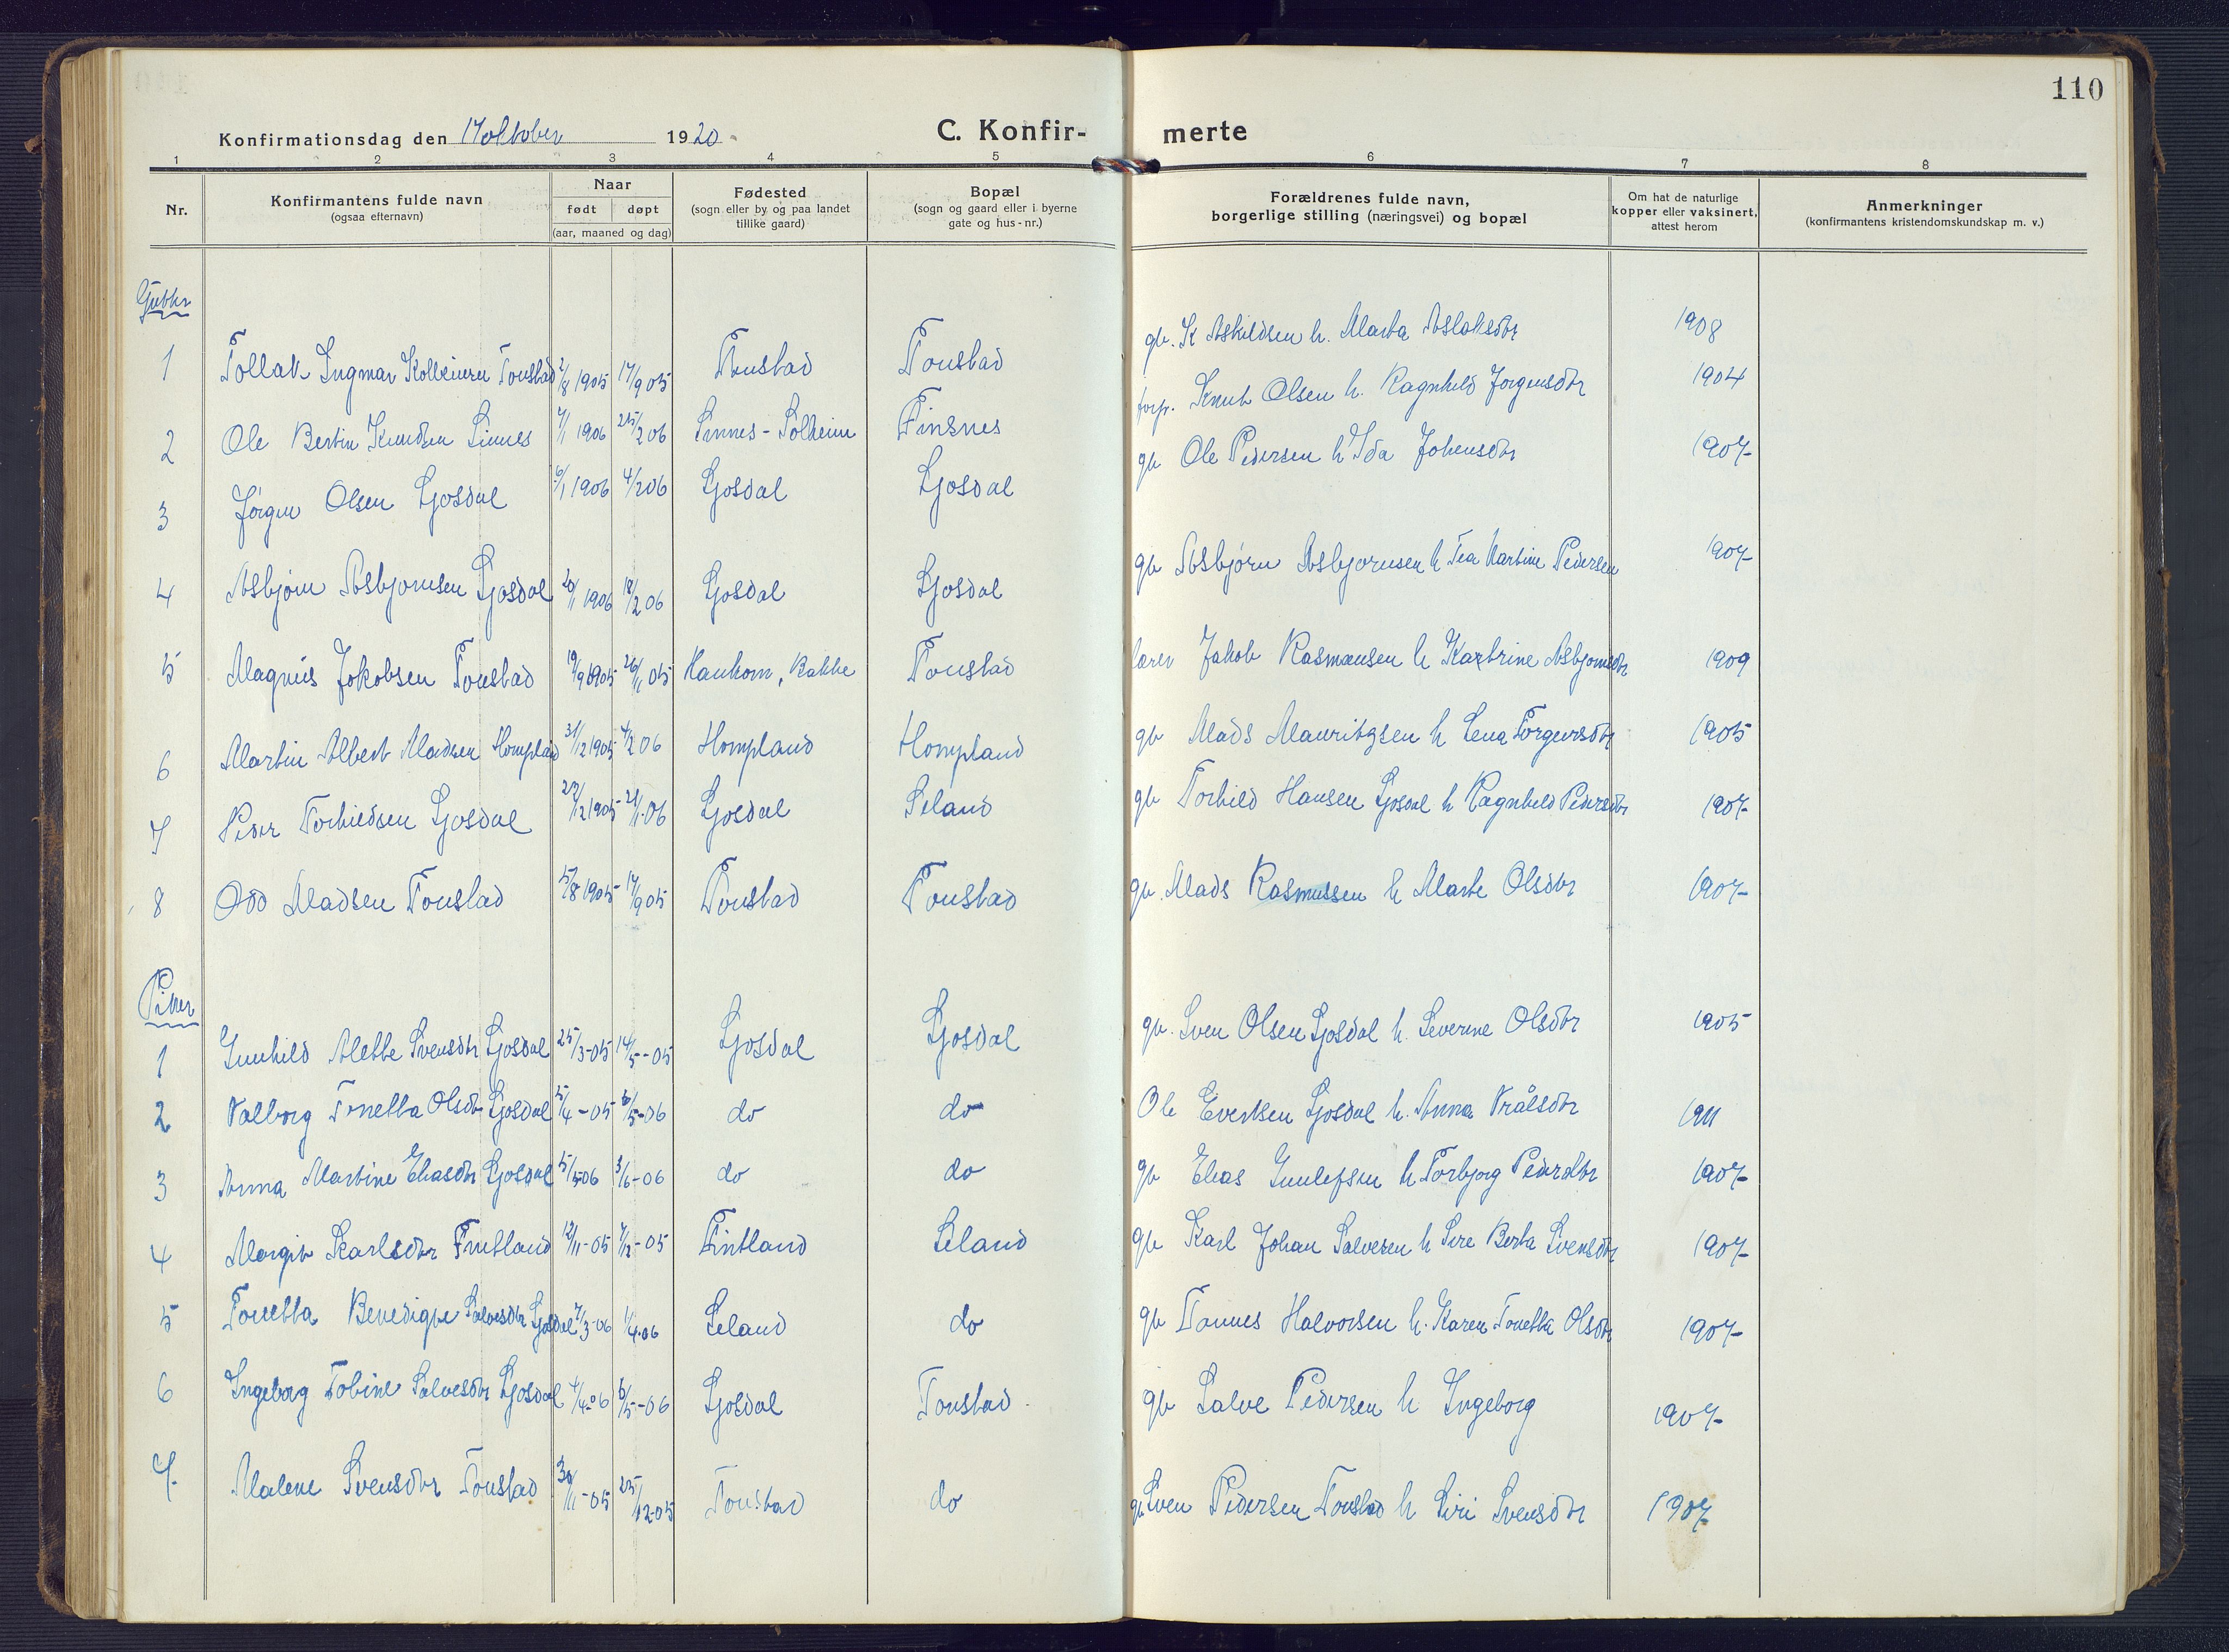 110
Konfirmationsdag den 17 oktober 1920
C. Konfir- merte
1 2 3 4 5 6 7 8
Nr.
Konfirmantens fulde navn
(ogsaa efternavn)
Naar
født døpt
(aar, maaned og dag)
Fødested
(sogn eller by og paa landet
tillike gaard)
Bopæl
(sogn og gaard eller i byerne
gate og hus-nr.)
Forældrenes fulde navn,
borgerlige stilling (næringsvei) og bopæl
Om hat de naturlige
kopper eller vaksinert,
attest herom
Anmerkninger
(konfirmantens kristendomskundskap m. v.)
Gutter
1 Tollak Ingmar Tonstad 2/8 1905 17/9 05 Tonstad Tonstad gb. K Askildsen h. Marta Aslaksdtr 1908
2 Ole Bertin Knudsen Sinnes 7/1 1906 25/2 06 Sinnes - Solheim Finsnes forp. Knut Olsen h. Ragnhild Jørgensdtr 1904
3 Jørgen Olsen Ljosdal 6/1 1906 4/2 06 Ljosdal Ljosdal gb Ole Pedersen h Ida Johensdtr 1907
4 Asbjørn Asbjørnsen Ljosdal 20/1 1906 18/2 06 Ljosdal Ljosdal gb Asbjørn Asbjørnsen h Tea Martine Pedersen 1907
5 Magnus Jakobsen Tonstad 19/9 1905 26/11 05 Haukom, Bakke Tonstad lærer Jakob Rasmussen h Katrine Asbjørnsdtr 1909
6 Martin Albert Madsen Hompland 31/12 1905 4/2 06 Hompland Hompland gb Mads Mauritzsen h Lena Torgersdtr 1905
7 Peder Torkildsen Ljosdal 27/12 1905 21/1 06 Ljosdal Seland gb Torkild Hansen Ljosdal h Ragnhild Pedersdtr 1907
8 Odd Madsen Tonstad 5/8 1905 17/9 05 Tonstad Tonstad gb. Mads Rasmussen h Marte Olsdtr 1907
Piker
1 Gunhild Alette Svensdtr Ljosdal 25/3-05 14/5-05 Ljosdal Ljosdal gb. Sven Olsen Ljosdal h. Severine Olsdtr 1905
2 Valborg Tonetta Olsdtr Ljosdal 5/4-05 6/5-06 do do Ole Evertsen Ljosdal h. Anna Trålsdtr 1911
3 Anna Martine Eliasdtr Ljosdal 5/5 06 3/6-06 do do gb Elias Gunlefsen h Torbjørg Pedersdtr 1907
4 Margit Karlsdtr Fintland 12/11-05 7/12-05 Fintland Seland gb Karl Johan Salvesen h Sire Berta Svensdtr 1907
5 Tonetta Benedigte Salvesdtr Ljosdal 7/3-06 1/4-06 Seland do gb Tønnes Halvorsen h. Karen Tonetta Olsdtr 1907
6 Ingeborg Tobine Salvesdtr Ljosdal 4/4-06 6/5-06 Ljosdal Tonstad gb Salve Pedersen h Ingeborg 1907
7 Malene Svensdtr Tonstad 30/11-05 25/12-05 Tonstad do gb Sven Pedersen Tonstad h Siri Svensdtr 1907